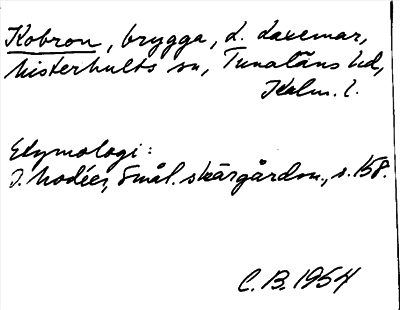 Kobron, brygga, d. Laxemar,
Misterhults sn, Tunaläns hd,
Kalm. l.
Etymologi:
I. Modéer, Smål. skärgårdsn., s. 158.
C. B. 1954